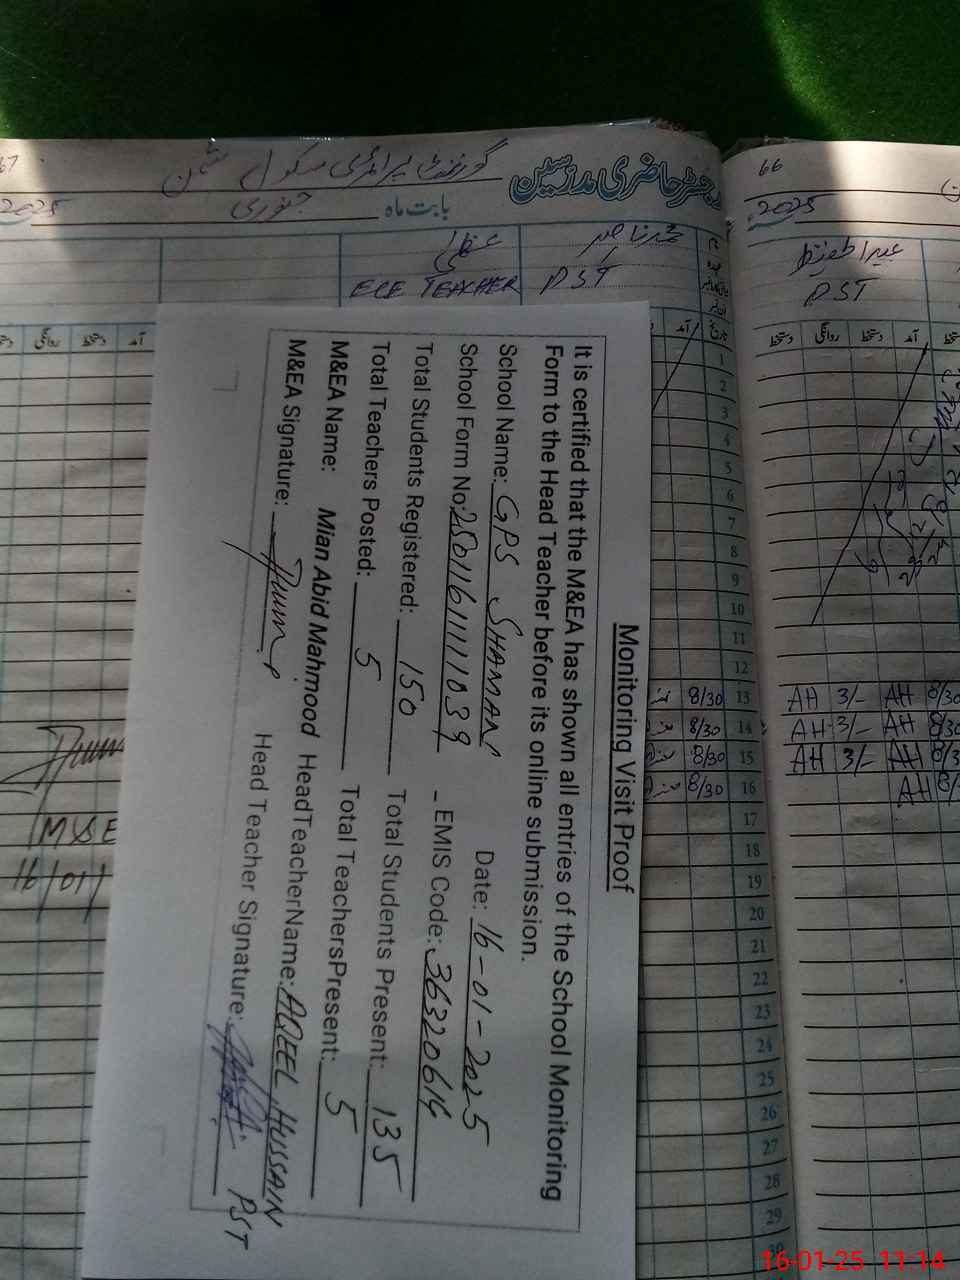 گورنمنٹ پرائمری سکول شمن
رجسٹر حاضری مدرسین
بابت ماہ جنوری
2025
66
2025
PST
ECE TEACHER
PST
آمد
دستخط
روانگی
دستخط
آمد
Monitoring Visit Proof
It is certified that the M&EA has shown all entries of the School Monitoring
Form to the Head Teacher before its online submission.
School Name: GPS SHAMAN Date: 16-01-2025
School Form No: EMIS Code:
Total Students Registered: 150 Total Students Present: 135
Total Teachers Posted: 5 Total TeachersPresent: 5
M&EA Name: Mian Abid Mahmood HeadTeacherName: AQEEL HUSSAIN
M&EA Signature: Head Teacher Signature: PST
1
2
3
4
5
6
7
8
9
10
11
12
8/30 13 AH 3/- AH 8/30
8/30 14 AH 3/- AH 8/30
8/30 15 AH 3/- AH 8/3
8/30 16 AH 8/
17
18
19
20
21
22
23
24
25
26
27
28
29
16/01/
16-01-25 11:14